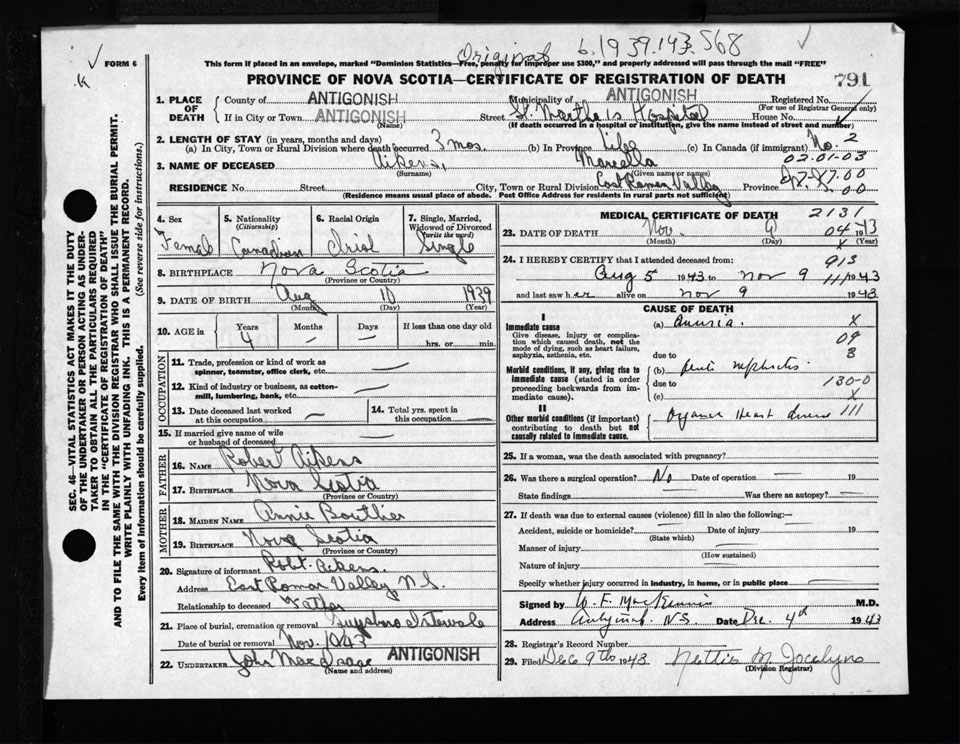 Original 6.1939.143.568
K
FORM 6
This form if placed in an envelope, marked "Dominion Statistics—Free, penalty for improper use $300," and properly addressed will pass through the mail "FREE"
PROVINCE OF NOVA SCOTIA—CERTIFICATE OF REGISTRATION OF DEATH
791
SEC. 46—VITAL STATISTICS ACT MAKES IT THE DUTY
OF THE UNDERTAKER OR PERSON ACTING AS UNDER-
TAKER TO OBTAIN ALL THE PARTICULARS REQUIRED
IN THE "CERTIFICATE OF REGISTRATION OF DEATH"
AND TO FILE THE SAME WITH THE DIVISION REGISTRAR WHO SHALL ISSUE THE BURIAL PERMIT.
WRITE PLAINLY WITH UNFADING INK. THIS IS A PERMANENT RECORD.
Every item of information should be carefully supplied. (See reverse ride for instructions.)
1. PLACE OF DEATH
County of ANTIGONISH Municipality of ANTIGONISH Registered No.
(For use of Registrar General only)
If in City or Town ANTIGONISH Street St. Martha's Hospital House No.
(Name) (If death occurred in a hospital or institution, give the name instead of street and number)
2. LENGTH OF STAY (in years, months and days)
(a) In City, Town or Rural Division where death occurred 3 mos. (b) In Province Life (c) In Canada (if immigrant) No. 2
02-01-03
3. NAME OF DECEASED Aikens, Marcella
(Surname) (Given name or names)
RESIDENCE No. Street City, Town or Rural Division East Roman Valley Province
(Residence means usual place of abode. Post Office Address for residents in rural parts not sufficient)
4. Sex Female
5. Nationality (Citizenship) Canadian
6. Racial Origin Irish
7. Single, Married, Widowed or Divorced (write the word) Single
8. BIRTHPLACE Nova Scotia
(Province or Country)
9. DATE OF BIRTH Aug 10 1939
(Month) (Day) (Year)
10. AGE in Years Months Days If less than one day old
4 — — hrs. or min.
OCCUPATION
11. Trade, profession or kind of work as spinner, teamster, office clerk, etc. —
12. Kind of industry or business, as cotton-mill, lumbering, bank, etc. —
13. Date deceased last worked at this occupation —
14. Total yrs. spent in this occupation —
15. If married give name of wife or husband of deceased —
FATHER
16. NAME Robert Aikens
17. BIRTHPLACE Nova Scotia
(Province or Country)
MOTHER
18. MAIDEN NAME Annie Bouthier
19. BIRTHPLACE Nova Scotia
(Province or Country)
20. Signature of informant Robt. Aikens.
Address East Roman Valley N.S.
Relationship to deceased Father
21. Place of burial, cremation or removal Guysboro Intervale
Date of burial or removal Nov. 1943
22. UNDERTAKER John MacIsaac ANTIGONISH
(Name and address)
MEDICAL CERTIFICATE OF DEATH 2131
23. DATE OF DEATH Nov. 9
04-13
(Month) (Day) (Year)
24. I HEREBY CERTIFY that I attended deceased from: 913
Aug 5 1943 to Nov 9 1943
and last saw her alive on Nov 9 1943
CAUSE OF DEATH
I
Immediate cause
Give disease, injury or complication which caused death, not the mode of dying, such as heart failure, asphyxia, asthenia, etc.
(a) Anuria. X
09
B
due to
Morbid conditions, if any, giving rise to immediate cause (stated in order proceeding backwards from immediate cause).
(b) nephritis
due to 130-0
(c) X
II
Other morbid conditions (if important) contributing to death but not causally related to immediate cause.
Organic Heart disease 111
25. If a woman, was the death associated with pregnancy?
26. Was there a surgical operation? No Date of operation — 19
State findings Was there an autopsy? —
27. If death was due to external causes (violence) fill in also the following:—
Accident, suicide or homicide? Date of injury 19
(State which)
Manner of injury
(How sustained)
Nature of injury
Specify whether injury occurred in industry, in home, or in public place
Signed by W. F. MacKinnon M.D.
Address Antigonish N.S. Date Dec. 4th 1943
28. Registrar's Record Number
29. Filed Dec 9th 1943. Nettie M Jocelyn
(Division Registrar)